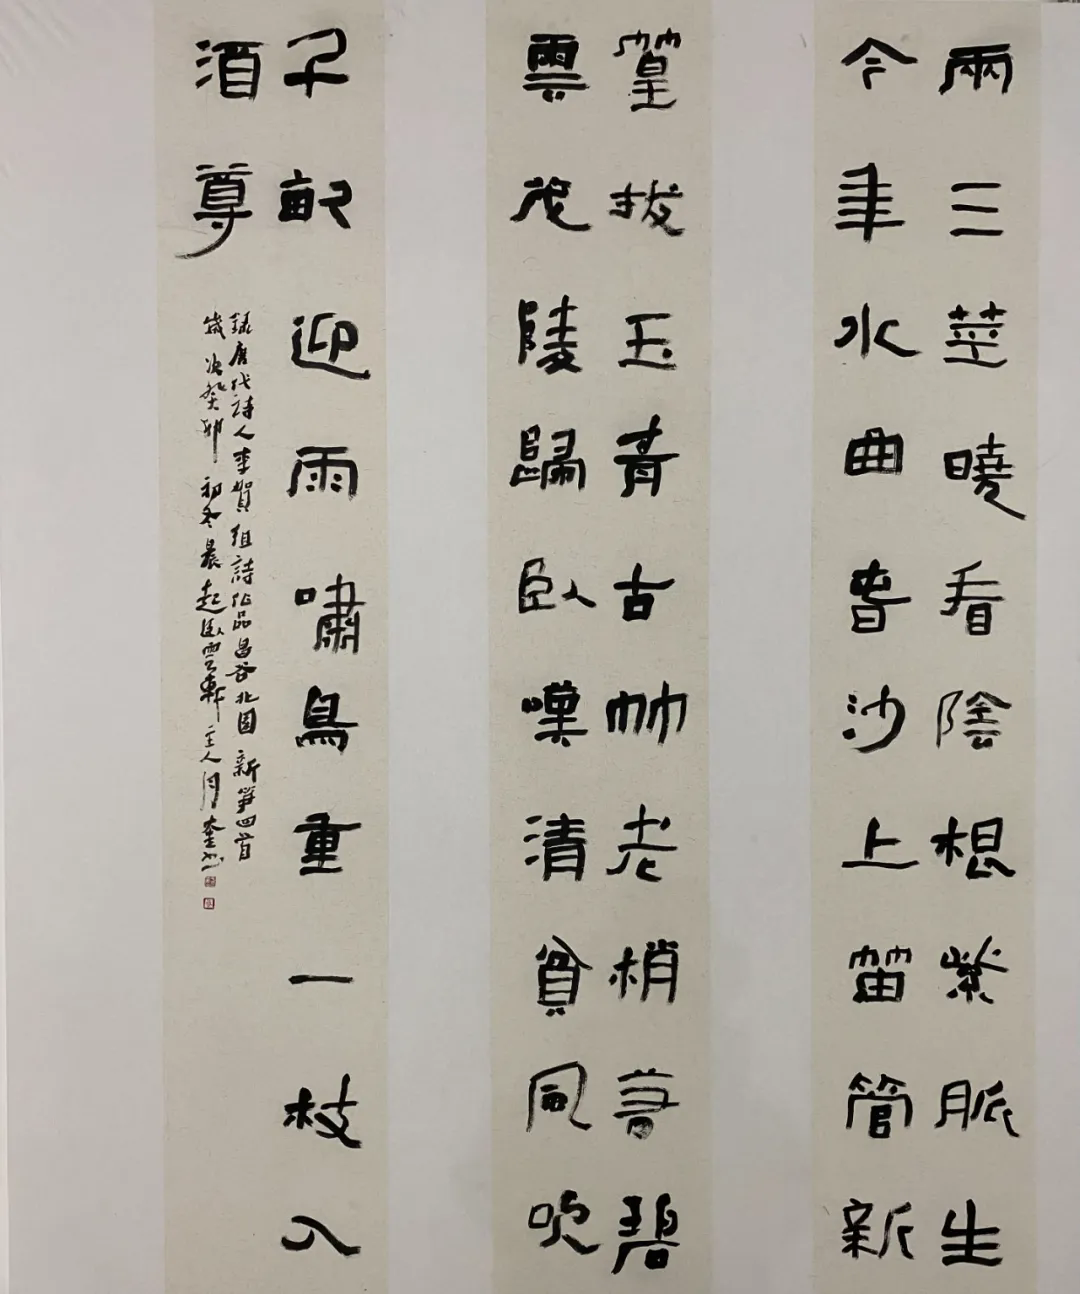 兩三莖曉看陰根紫脈生
今年水曲春沙上笛管新
篁拔玉青古竹老梢惹碧
雲茂陵歸臥嘆清貧風吹
千畝迎雨嘯鳥重一枝入
酒尊
錄唐代詩人李賀組詩作品昌谷北園新筍四首
歲次癸卯初冬晨起臥雲軒主人奎書